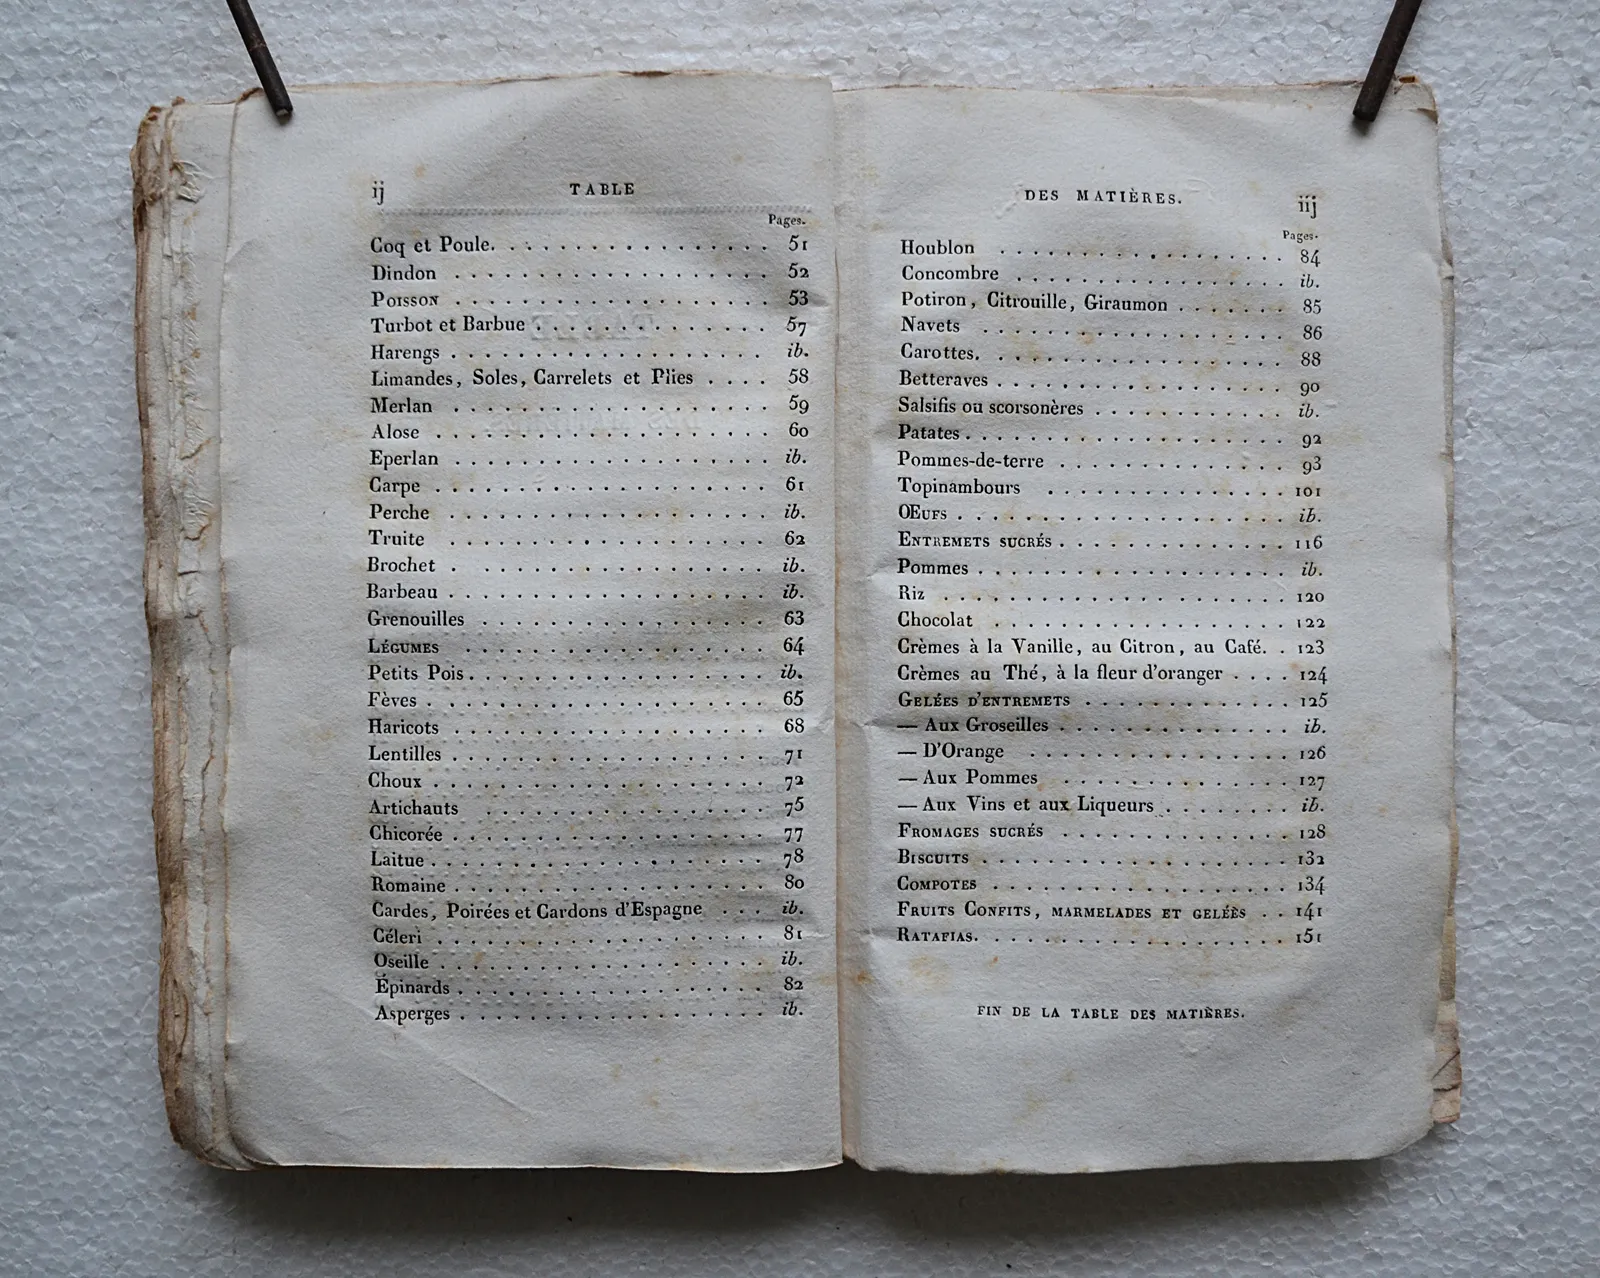 ij TABLE
Pages.
Coq et Poule. . . . . . . . . . . . . . . . . 51
Dindon . . . . . . . . . . . . . . . . . . 52
Poisson . . . . . . . . . . . . . . . . . . 53
Turbot et Barbue . . . . . . . . . . . . . 57
Harengs . . . . . . . . . . . . . . . . . . ib.
Limandes, Soles, Carrelets et Plies . . . . 58
Merlan . . . . . . . . . . . . . . . . . . 59
Alose . . . . . . . . . . . . . . . . . . . 60
Eperlan . . . . . . . . . . . . . . . . . . ib.
Carpe . . . . . . . . . . . . . . . . . . . 61
Perche . . . . . . . . . . . . . . . . . . ib.
Truite . . . . . . . . . . . . . . . . . . 62
Brochet . . . . . . . . . . . . . . . . . . ib.
Barbeau . . . . . . . . . . . . . . . . . . ib.
Grenouilles . . . . . . . . . . . . . . . . 63
Légumes . . . . . . . . . . . . . . . . . 64
Petits Pois . . . . . . . . . . . . . . . . . ib.
Fèves . . . . . . . . . . . . . . . . . . . 65
Haricots . . . . . . . . . . . . . . . . . . 68
Lentilles . . . . . . . . . . . . . . . . . . 71
Choux . . . . . . . . . . . . . . . . . . . 72
Artichauts . . . . . . . . . . . . . . . . 75
Chicorée . . . . . . . . . . . . . . . . . . 77
Laitue . . . . . . . . . . . . . . . . . . . 78
Romaine . . . . . . . . . . . . . . . . . . 80
Cardes, Poirées et Cardons d'Espagne . . . ib.
Céleri . . . . . . . . . . . . . . . . . . . 81
Oseille . . . . . . . . . . . . . . . . . . . ib.
Épinards . . . . . . . . . . . . . . . . . . 82
Asperges . . . . . . . . . . . . . . . . . . ib.
DES MATIÈRES. iij
Pages.
Houblon . . . . . . . . . . . . . . . . . 84
Concombre . . . . . . . . . . . . . . . . ib.
Potiron, Citrouille, Giraumon . . . . . . . 85
Navets . . . . . . . . . . . . . . . . . . 86
Carottes. . . . . . . . . . . . . . . . . . 88
Betteraves . . . . . . . . . . . . . . . . . 90
Salsifis ou scorsonères . . . . . . . . . . . ib.
Patates . . . . . . . . . . . . . . . . . . . 92
Pommes-de-terre . . . . . . . . . . . . . . 93
Topinambours . . . . . . . . . . . . . . 101
OEufs . . . . . . . . . . . . . . . . . . . ib.
Entremets sucrés . . . . . . . . . . . . . 116
Pommes . . . . . . . . . . . . . . . . . . ib.
Riz . . . . . . . . . . . . . . . . . . . . 120
Chocolat . . . . . . . . . . . . . . . . . 122
Crèmes à la Vanille, au Citron, au Café. . 123
Crèmes au Thé, à la fleur d'oranger . . . . 124
Gelées d'entremets . . . . . . . . . . . . 125
— Aux Groseilles . . . . . . . . . . . . . ib.
— D'Orange . . . . . . . . . . . . . . . 126
— Aux Pommes . . . . . . . . . . . . . 127
— Aux Vins et aux Liqueurs . . . . . . . . ib.
Fromages sucrés . . . . . . . . . . . . . 128
Biscuits . . . . . . . . . . . . . . . . . . 132
Compotes . . . . . . . . . . . . . . . . . 134
Fruits Confits, marmelades et gelées . . 141
Ratafias. . . . . . . . . . . . . . . . . . 151
FIN DE LA TABLE DES MATIÈRES.